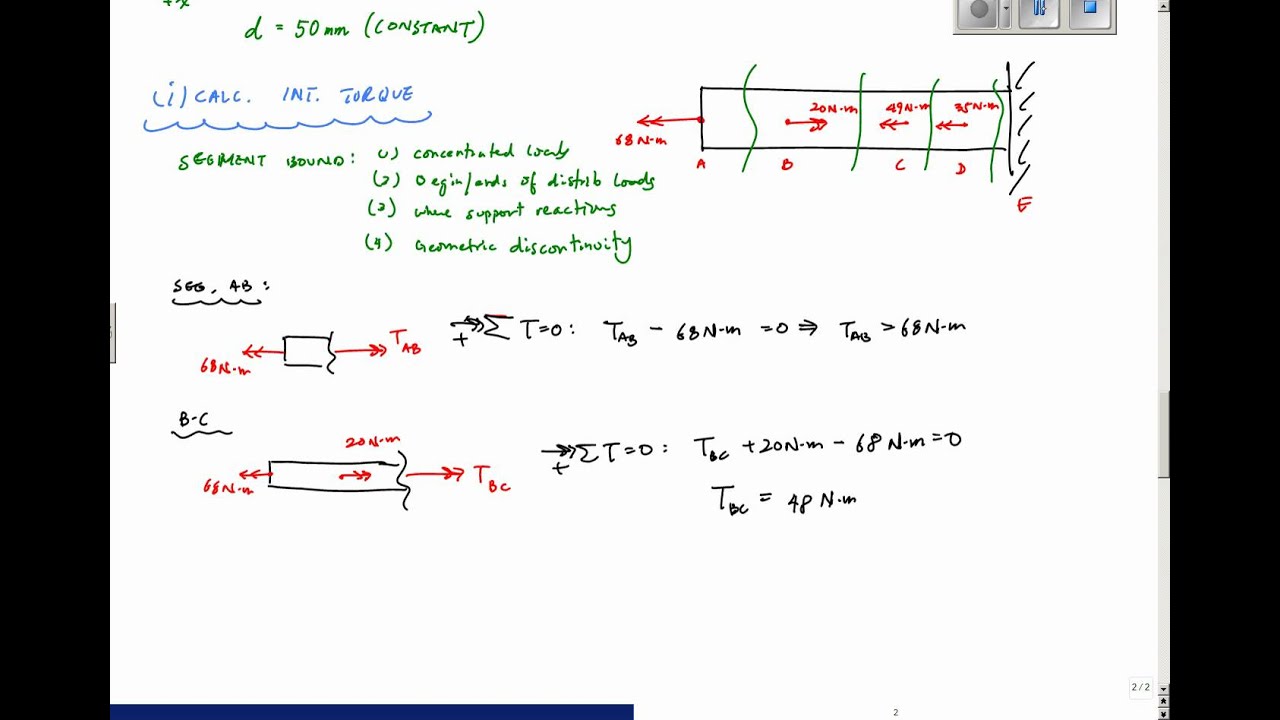 +x
d = 50mm (CONSTANT)
(i) CALC. INT. TORQUE
SEGMENT BOUND: (1) concentrated loads
(2) Begin/ends of distrib loads
(3) where support reactions
(4) Geometric discontinuity
68N-m 20N-m 49N-m 35N-m
A B C D E
SEG. AB:
68N-m T_AB + ΣT=0: T_AB - 68N-m =0 ⇒ T_AB > 68N-m
B-C
20N-m
68N-m T_BC + ΣT=0: T_BC +20N-m - 68N-m=0
T_BC = 48 N-m
2 / 2
2